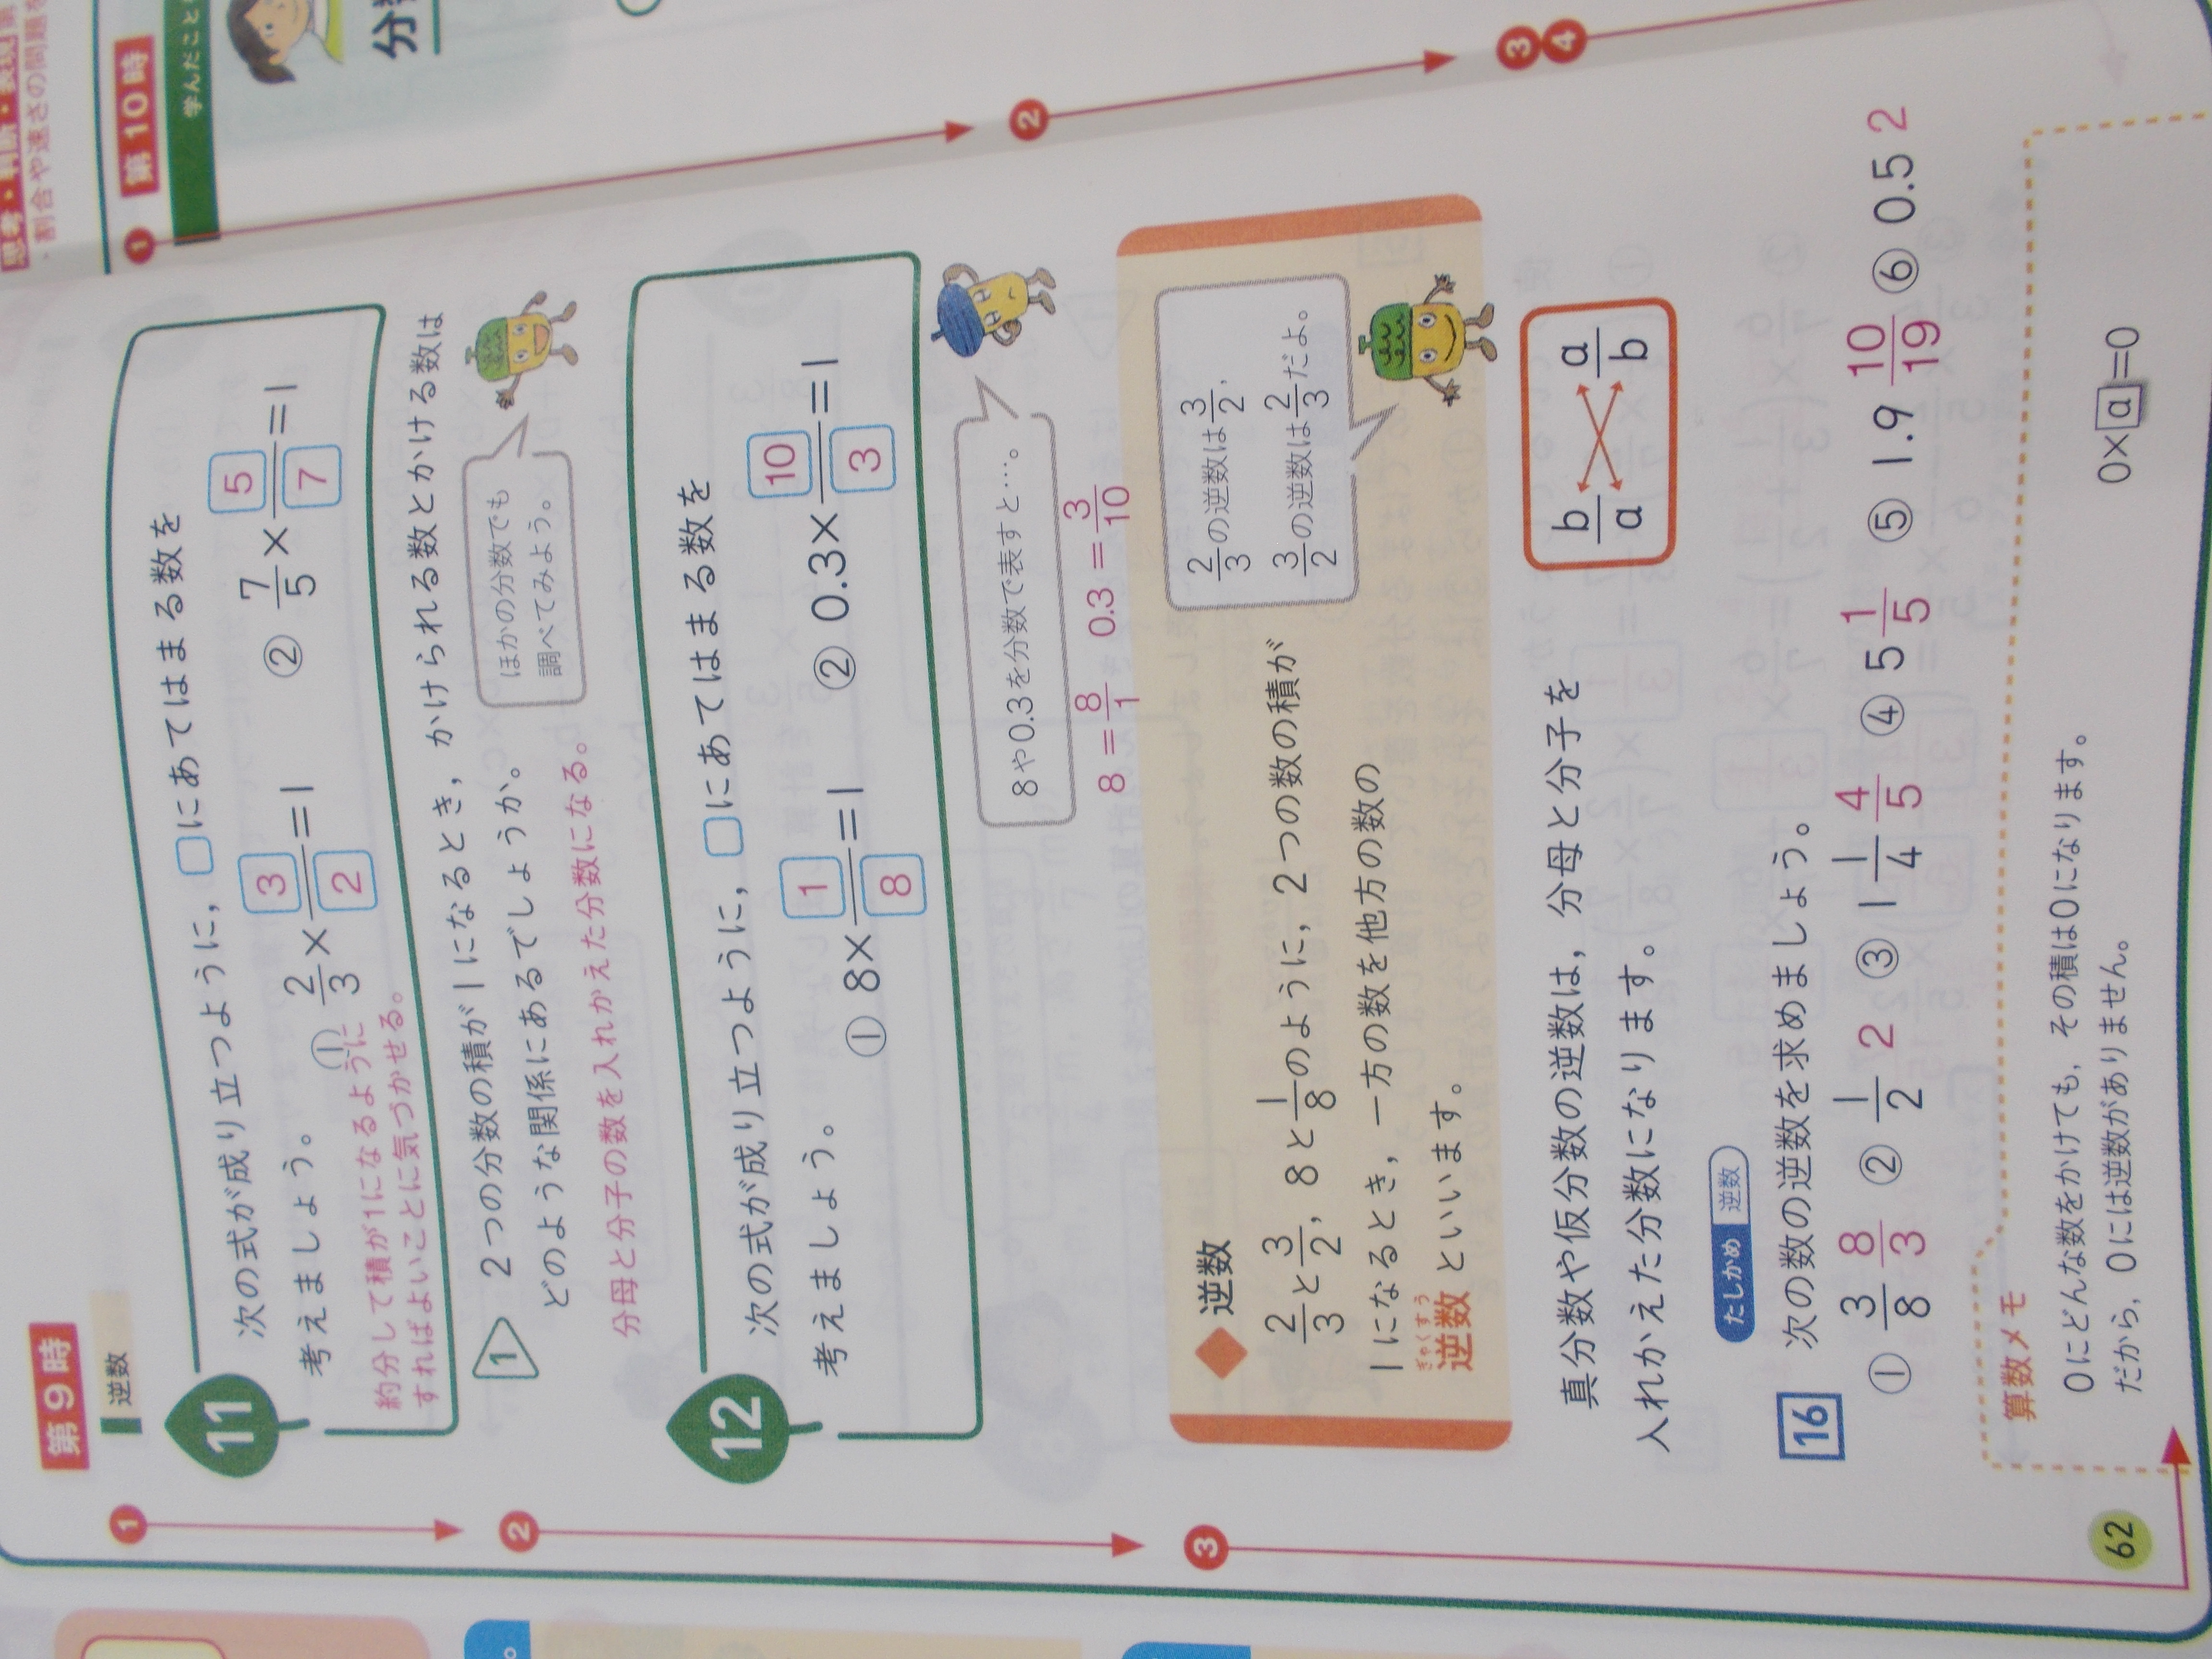 思考・判断・表現
・割合や速さの問題を
第9時
逆数
11
次の式が成り立つように，□にあてはまる数を
考えましょう。
① 2/3×3/2=1
② 7/5×5/7=1
約分して積が1になるように
すればよいことに気づかせる。
1 2つの分数の積が1になるとき，かけられる数とかける数は
どのような関係にあるでしょうか。
ほかの分数でも
調べてみよう。
分母と分子の数を入れかえた分数になる。
12
次の式が成り立つように，□にあてはまる数を
考えましょう。
① 8×1/8=1
② 0.3×10/3=1
8や0.3を分数で表すと…。
8=8/1 0.3=3/10
◆逆数
2/3と3/2，8と1/8のように，2つの数の積が
1になるとき，一方の数を他方の数の
ぎゃくすう
逆数といいます。
2/3の逆数は3/2，
3/2の逆数は2/3だよ。
真分数や仮分数の逆数は，分母と分子を
入れかえた分数になります。
b/a a/b
たしかめ 逆数
16 次の数の逆数を求めましょう。
① 3/8 8/3 ② 1/2 2 ③ 1 1/4 4/5 ④ 5 1/5 ⑤ 1.9 10/19 ⑥ 0.5 2
算数メモ
0にどんな数をかけても，その積は0になります。
だから，0には逆数がありません。
0×a=0
62
1
2
3
第10時
学んだこと
分数
1
2
3
4